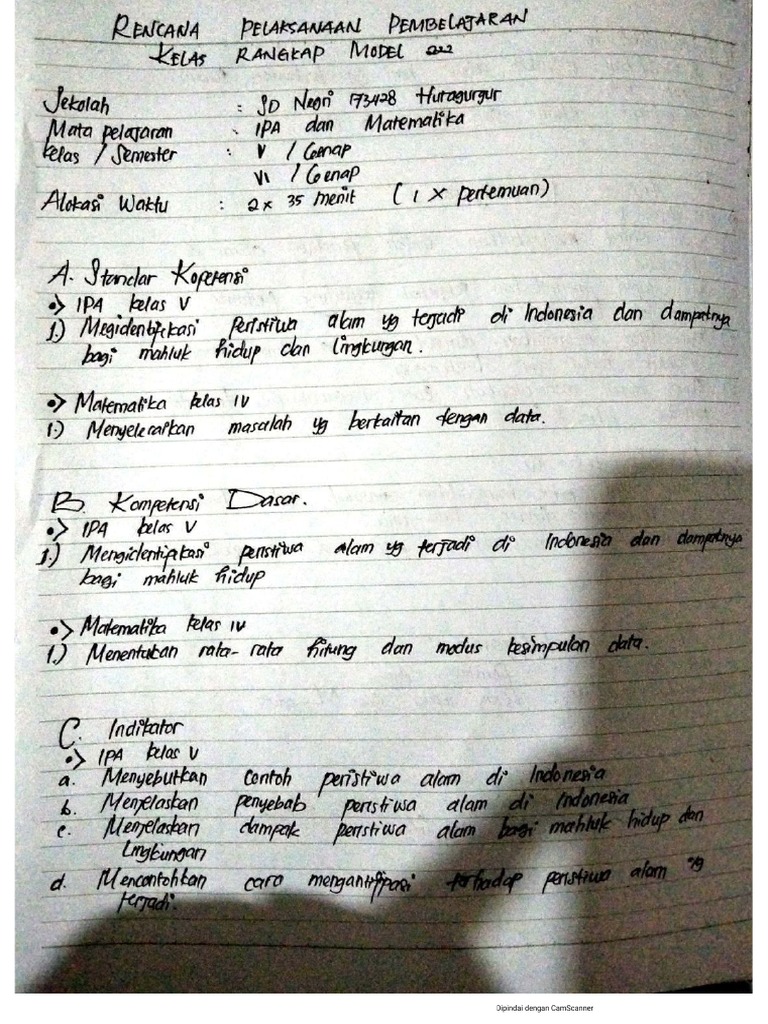 RENCANA PELAKSANAAN PEMBELAJARAN
KELAS RANGKAP MODEL 222
Sekolah : SD Negri 173428 Hutagurgur
Mata pelajaran : IPA dan Matematika
kelas / Semester : V / Genap
VI / Genap
Alokasi Waktu : 2 x 35 menit ( 1 x pertemuan)
A. Standar Kopetensi
•> IPA kelas V
1.) Megidentifikasi Peristiwa alam yg terjadi di Indonesia dan dampatnya
bagi mahluk hidup dan lingkungan.
•> Matematika kelas IV
1.) Menyelesaikan masalah yg berkaitan dengan data.
B. Kompetensi Dasar.
•> IPA kelas V
1.) Mengidentifikasi peristiwa alam yg terjadi di Indonesia dan dampatnya
bagi mahluk hidup
•> Matematika kelas IV
1.) Menentukan rata-rata hitung dan modus kesimpulan data.
C. Indikator
•> IPA kelas V
a. Menyebutkan contoh peristiwa alam di Indonesia
b. Menjelaskan penyebab peristiwa alam di Indonesia
c. Menjelaskan dampak peristiwa alam bagi mahluk hidup dan
Lingkungan
d. Mencontohkan cara mengantifipasi terhadap peristiwa alam yg
terjadi.
Dipindai dengan CamScanner